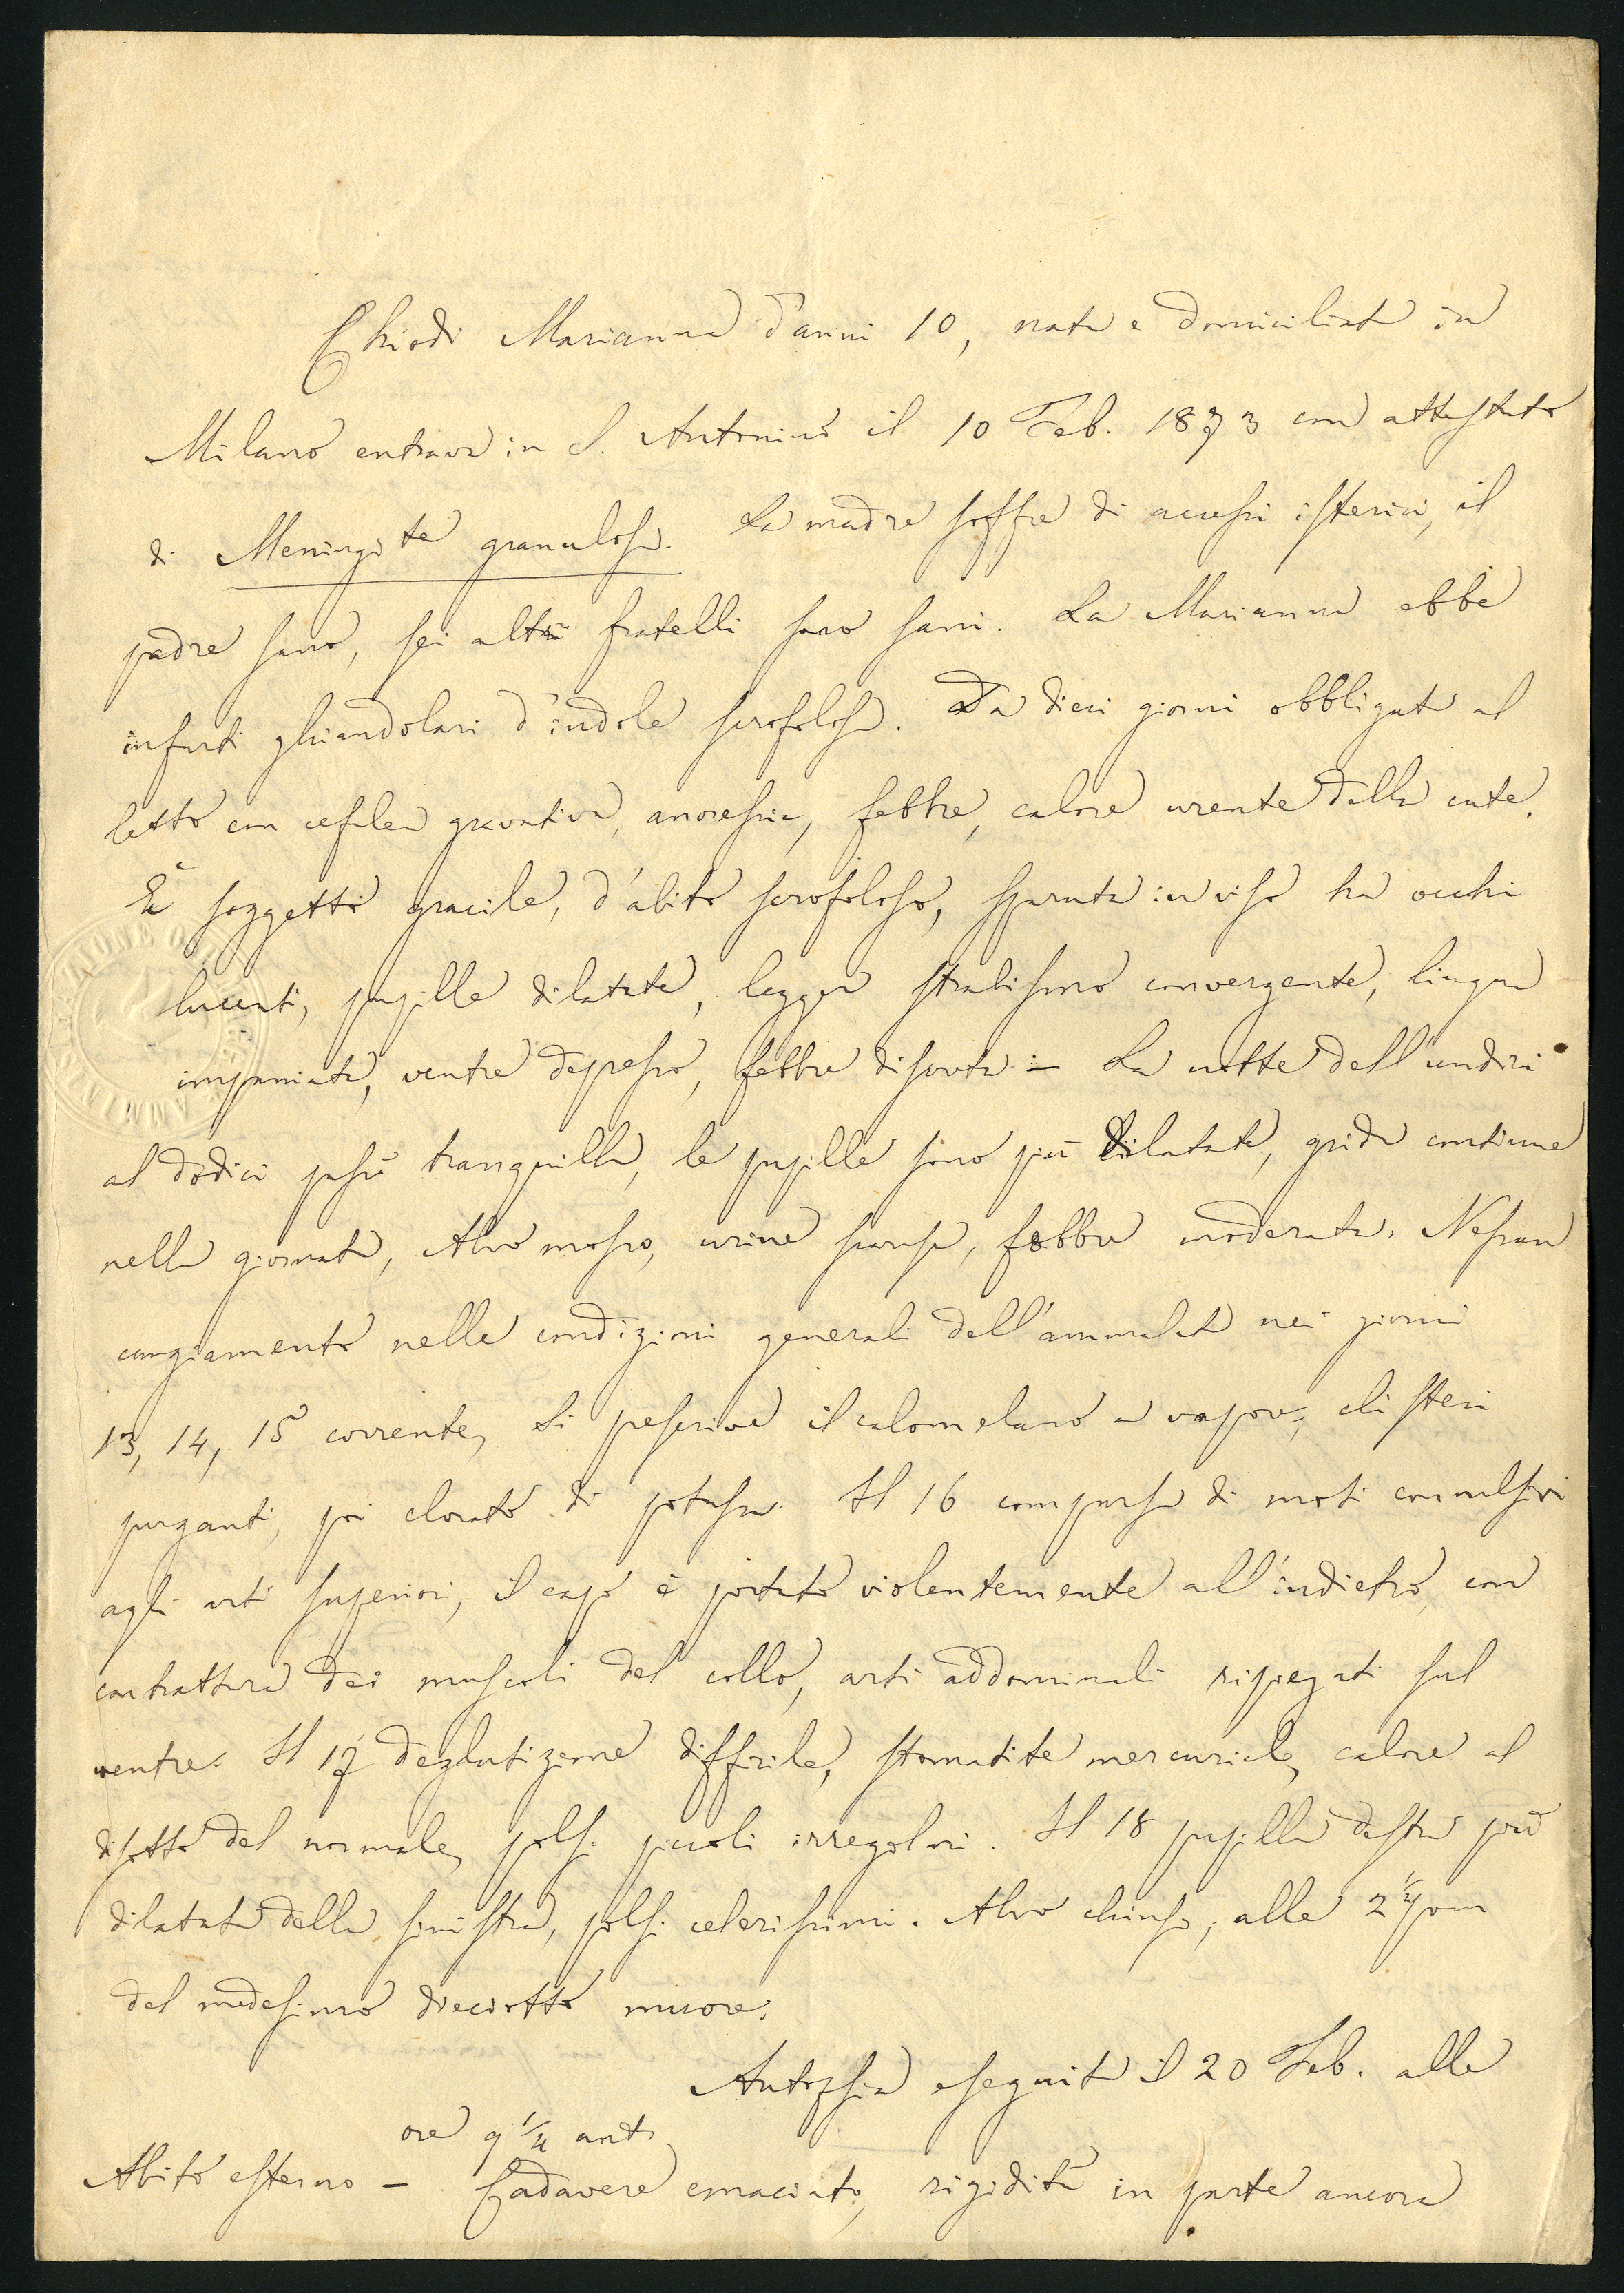 Chiodi Marianna d'anni 10, nata e domiciliata in
Milano entrava in S. Antonino il 10 Feb. 1873 con attestato
di Meningite granulosa. La madre soffre di accessi isterici, il
padre sano, sei altri fratelli sono sani. La Marianna ebbe
infarti ghiandolari d'indole scrofolosa. Da dieci giorni obbligata al
letto con cefalea gravativa, anoressia, febbre, calore urente della cute.
È soggetto gracile, d'abito scrofoloso, sparuta in viso ha occhi
lucenti, pupille dilatate, legger strabismo convergente, lingua
impaniata, ventre depresso, febbre discreta :- La notte dell'undici
al dodici passò tranquilla, le pupille sono più dilatate, grida continue
nella giornata, Alvo mosso, urine scarse, febbre moderata. Nessun
cangiamento nelle condizioni generali dell'ammalata nei giorni
13, 14, 15 corrente, si prescrive il calomelano a vapore, clisteri
purganti, poi clorato di potassa. Il 16 comparsa di moti convulsivi
agli arti superiori, il capo è portato violentemente all'indietro, con
contrattura dei muscoli del collo, arti addominali ripiegati sul
ventre. Il 17 deglutizione difficile, stomatite mercuriale, calore al
disotto del normale, polsi piccoli irregolari. Il 18 pupilla destra più
dilatata della sinistra, polsi celerissimi. Alvo chiuso, alle 2 1/2 pom
del medesimo dieciotto muore.
Autopsia eseguita il 20 Feb. alle
ore 9 1/4 ant.
Abito esterno - Cadavere emaciato, rigidità in parte ancora